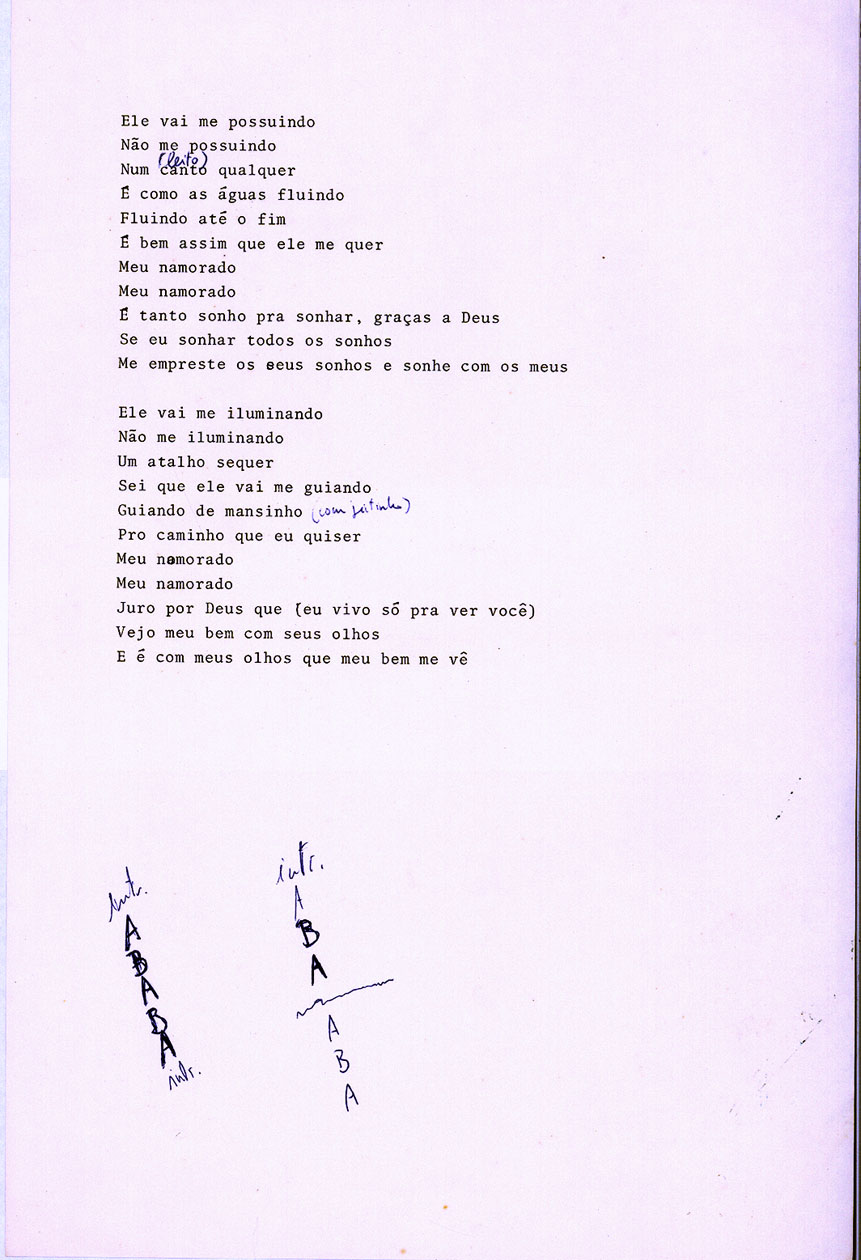 Ele vai me possuindo
Não me possuindo
(leito)
Num canto qualquer
É como as águas fluindo
Fluindo até o fim
É bem assim que ele me quer
Meu namorado
Meu namorado
É tanto sonho pra sonhar, graças a Deus
Se eu sonhar todos os sonhos
Me empreste os seus sonhos e sonhe com os meus
Ele vai me iluminando
Não me iluminando
Um atalho sequer
Sei que ele vai me guiando
Guiando de mansinho (com jeitinho)
Pro caminho que eu quiser
Meu namorado
Meu namorado
Juro por Deus que (eu vivo só pra ver você)
Vejo meu bem com seus olhos
E é com meus olhos que meu bem me vê
intr.
A
B
A
B
A
intr.
intr.
A
B
A
A
B
A